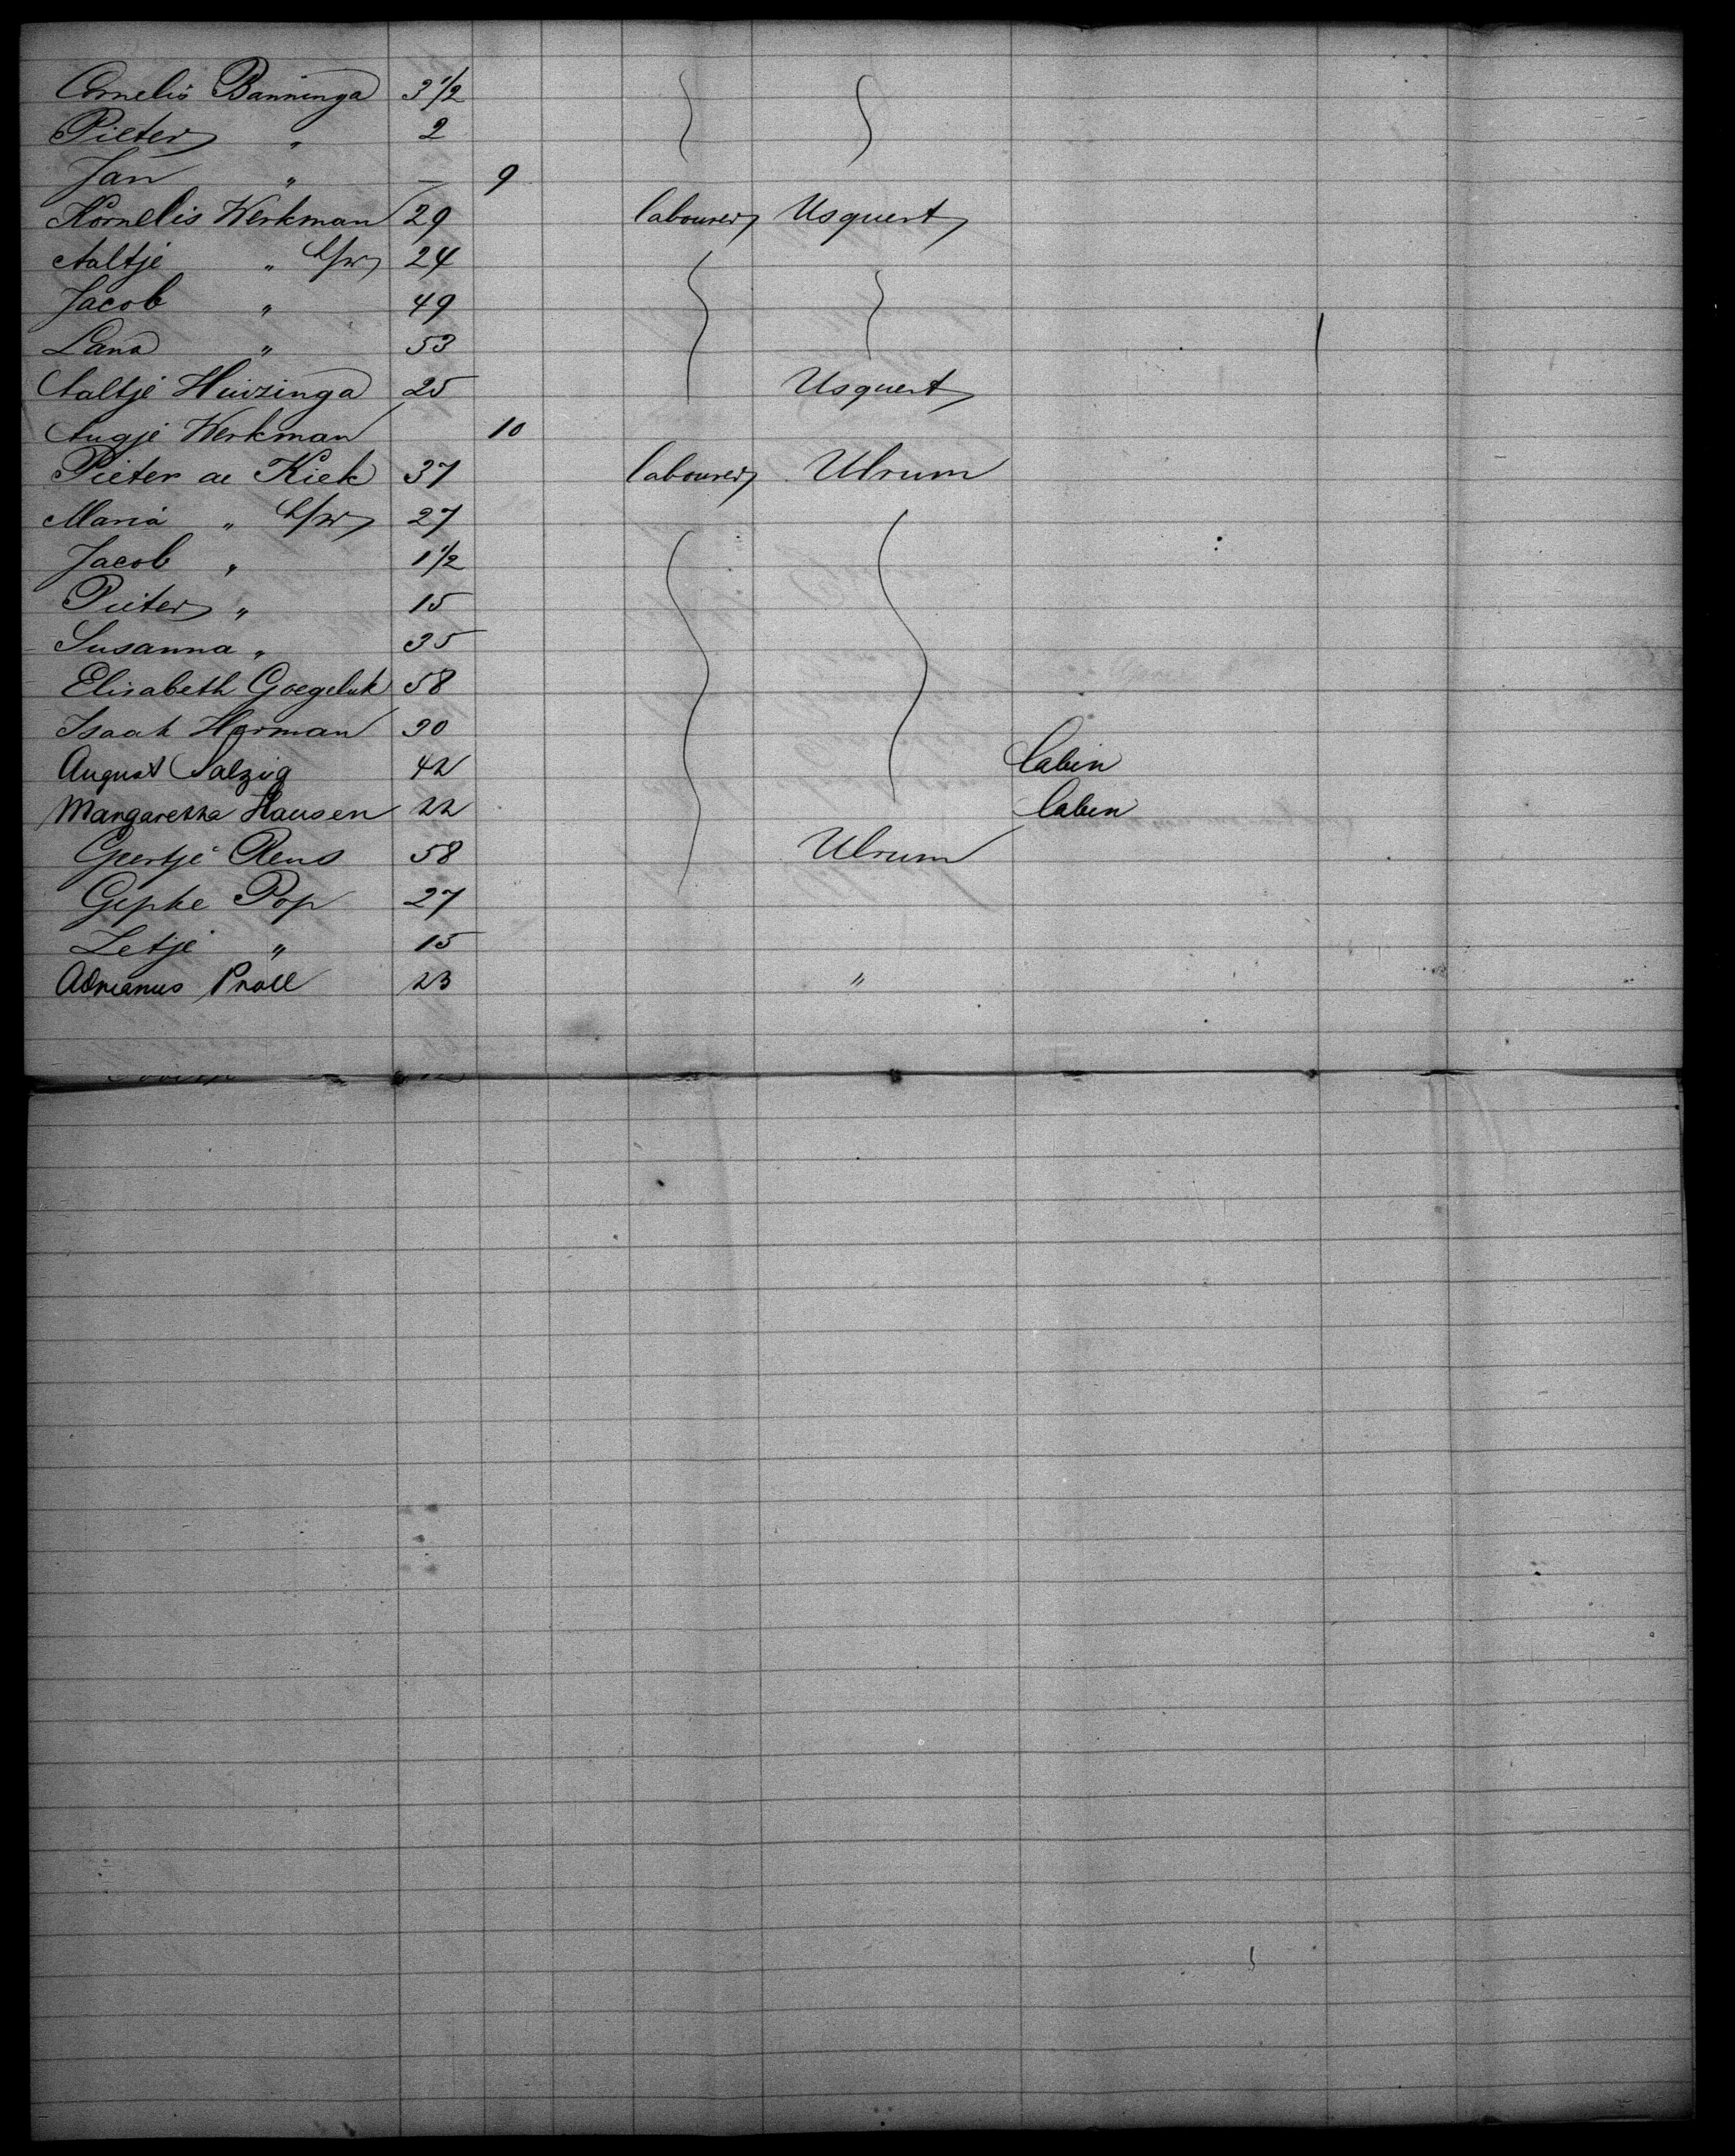 Cornelis Banninga 3 1/2
Pieter " 2
Jan " — 9
Kornelis Werkman 29 labourer Usquert
Aaltje " h/w 24
Jacob " 49
Lana " 53
Aaltje Huizinga 25 Usquert
Augje Werkman 10
Pieter de Kiek 37 labourer Ulrum
Maria " h/w 27
Jacob " 1 1/2
Pieter " 15
Susanna " 35
Elisabeth Goegeluk 58
Isaak Horman 30
August Salzig 42 Cabin
Margaretha Hausen 22 Cabin
Geertje Rens 58 Ulrum
Gepke Pop 27
Zetje " 15
Adrianus Proll 23 "